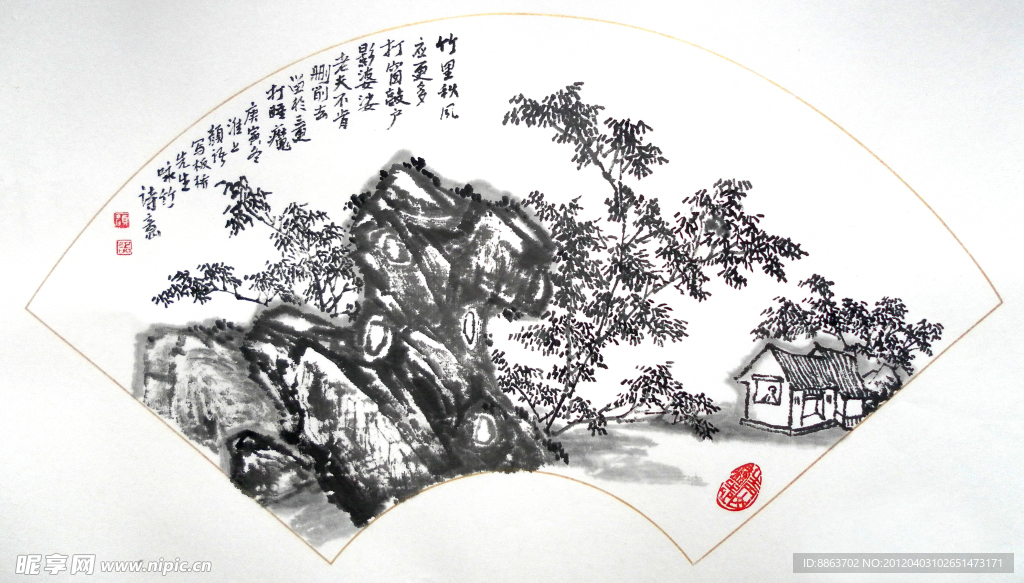 竹里秋风
应更多
打窗敲户
影婆娑
老夫不肯
删前去
留於三更
打睡魔
庚寅冬
淮上
颜语
写板桥
先生
咏竹
诗意
昵享网 www.nipic.cn
ID:8863702 NO:20120403102651473171